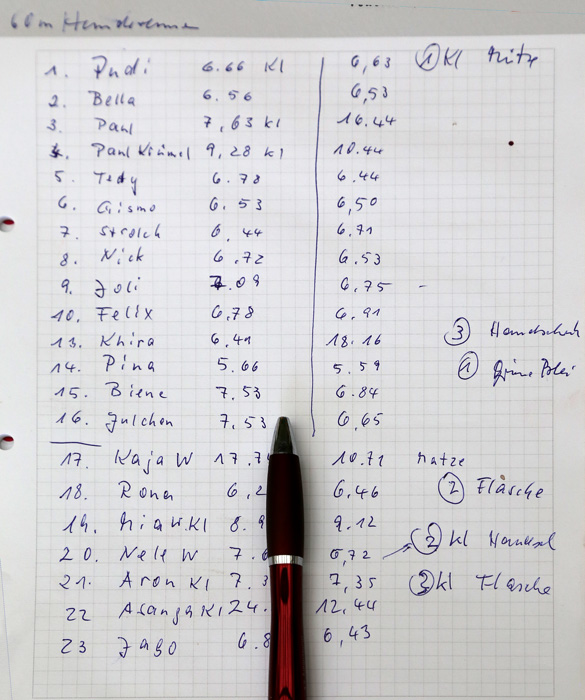 60 m Hunderennen
1. Rudi 6.66 Kl 6,63 ① Kl
2. Bella 6.56 6,53
3. Paul 7,63 kl 16.44
4. Paul Krümel 9,28 kl 10.44
5. Tedy 6.78 6.44
6. Gismo 6.53 6,50
7. Strolch 6.44 6.71
8. Nick 6,72 6.53
9. Joli 7.09 6,75 -
10. Felix 6,78 6.91
13. Khira 6.41 18.16 ③ Handschuh
14. Pina 5.66 5.59 ①
15. Biene 7,53 6.84
16. Julchen 7,53 6,65
17. Kaja W 17.7 10.71
18. Rona 6,2 6,46 ② Fläsche
19. Kl 8.9 9.12
20. Nele W 7.6 6,72 ② kl
21. Aron Kl 7.3 7,35 ③ kl Flasche
22 Asanga Kl 24. 12,44
23 Jago 6.8 6,43